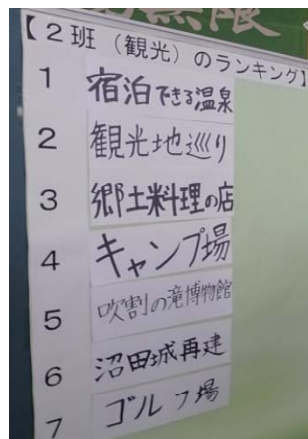 無限
【２班（観光）のランキング】
1 宿泊できる温泉
2 観光地巡り
3 郷土料理の店
4 キャンプ場
5 吹割の滝博物館
6 沼田城再建
7 ゴルフ場